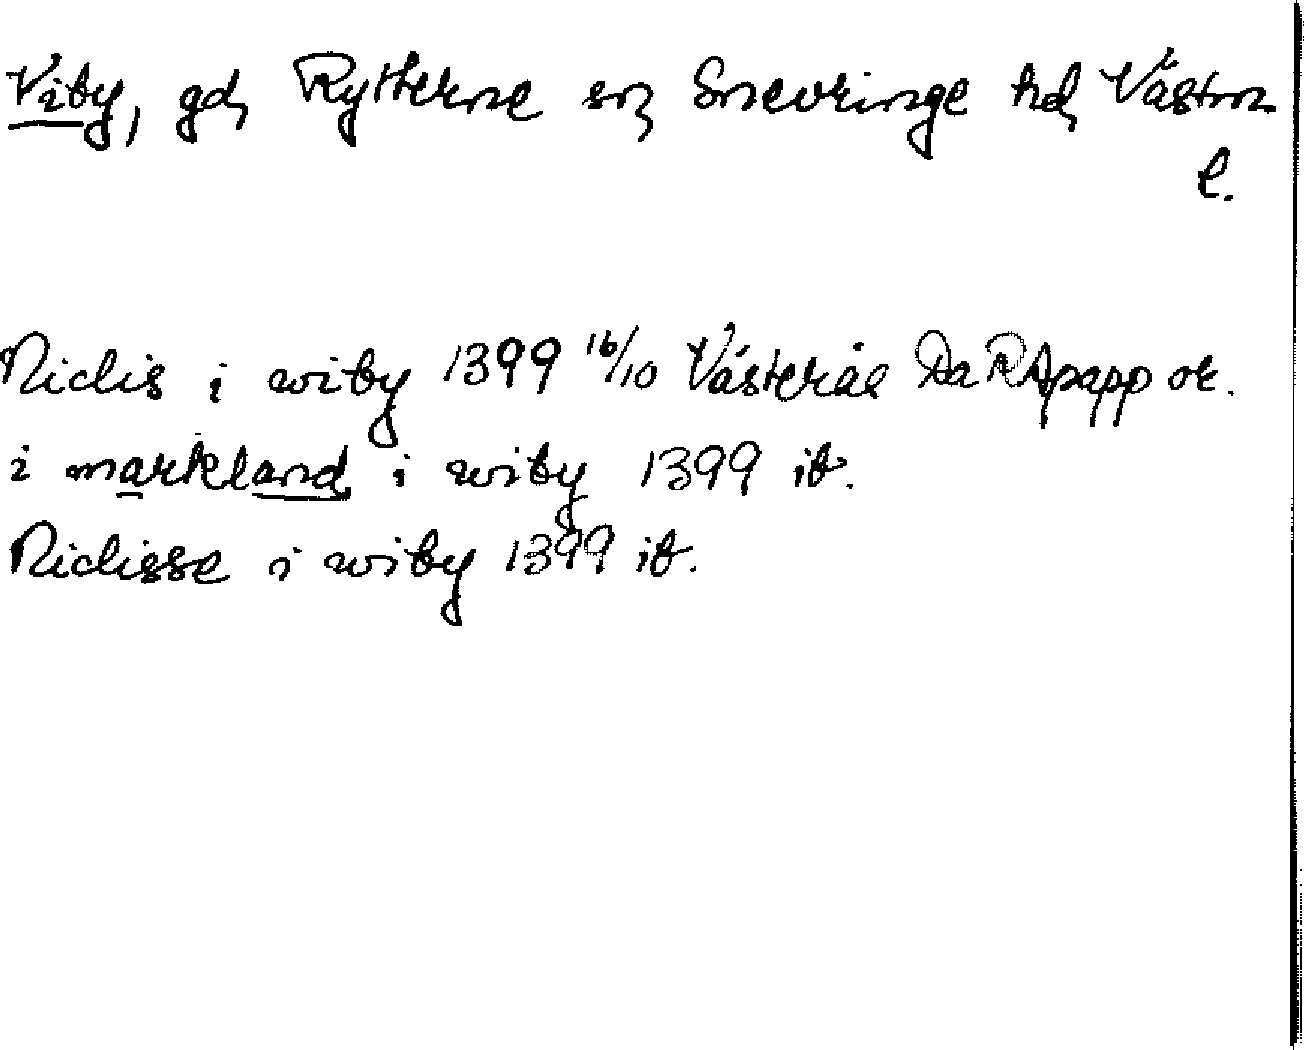 Viby, gd, Rytterne sn, Snevringe hd, Västm
l.
Niclis i wiby 1399 16/10 Västerås Da RApapp or.
i markland i wiby 1399 ib.
Niclisse i wiby 1399 ib.